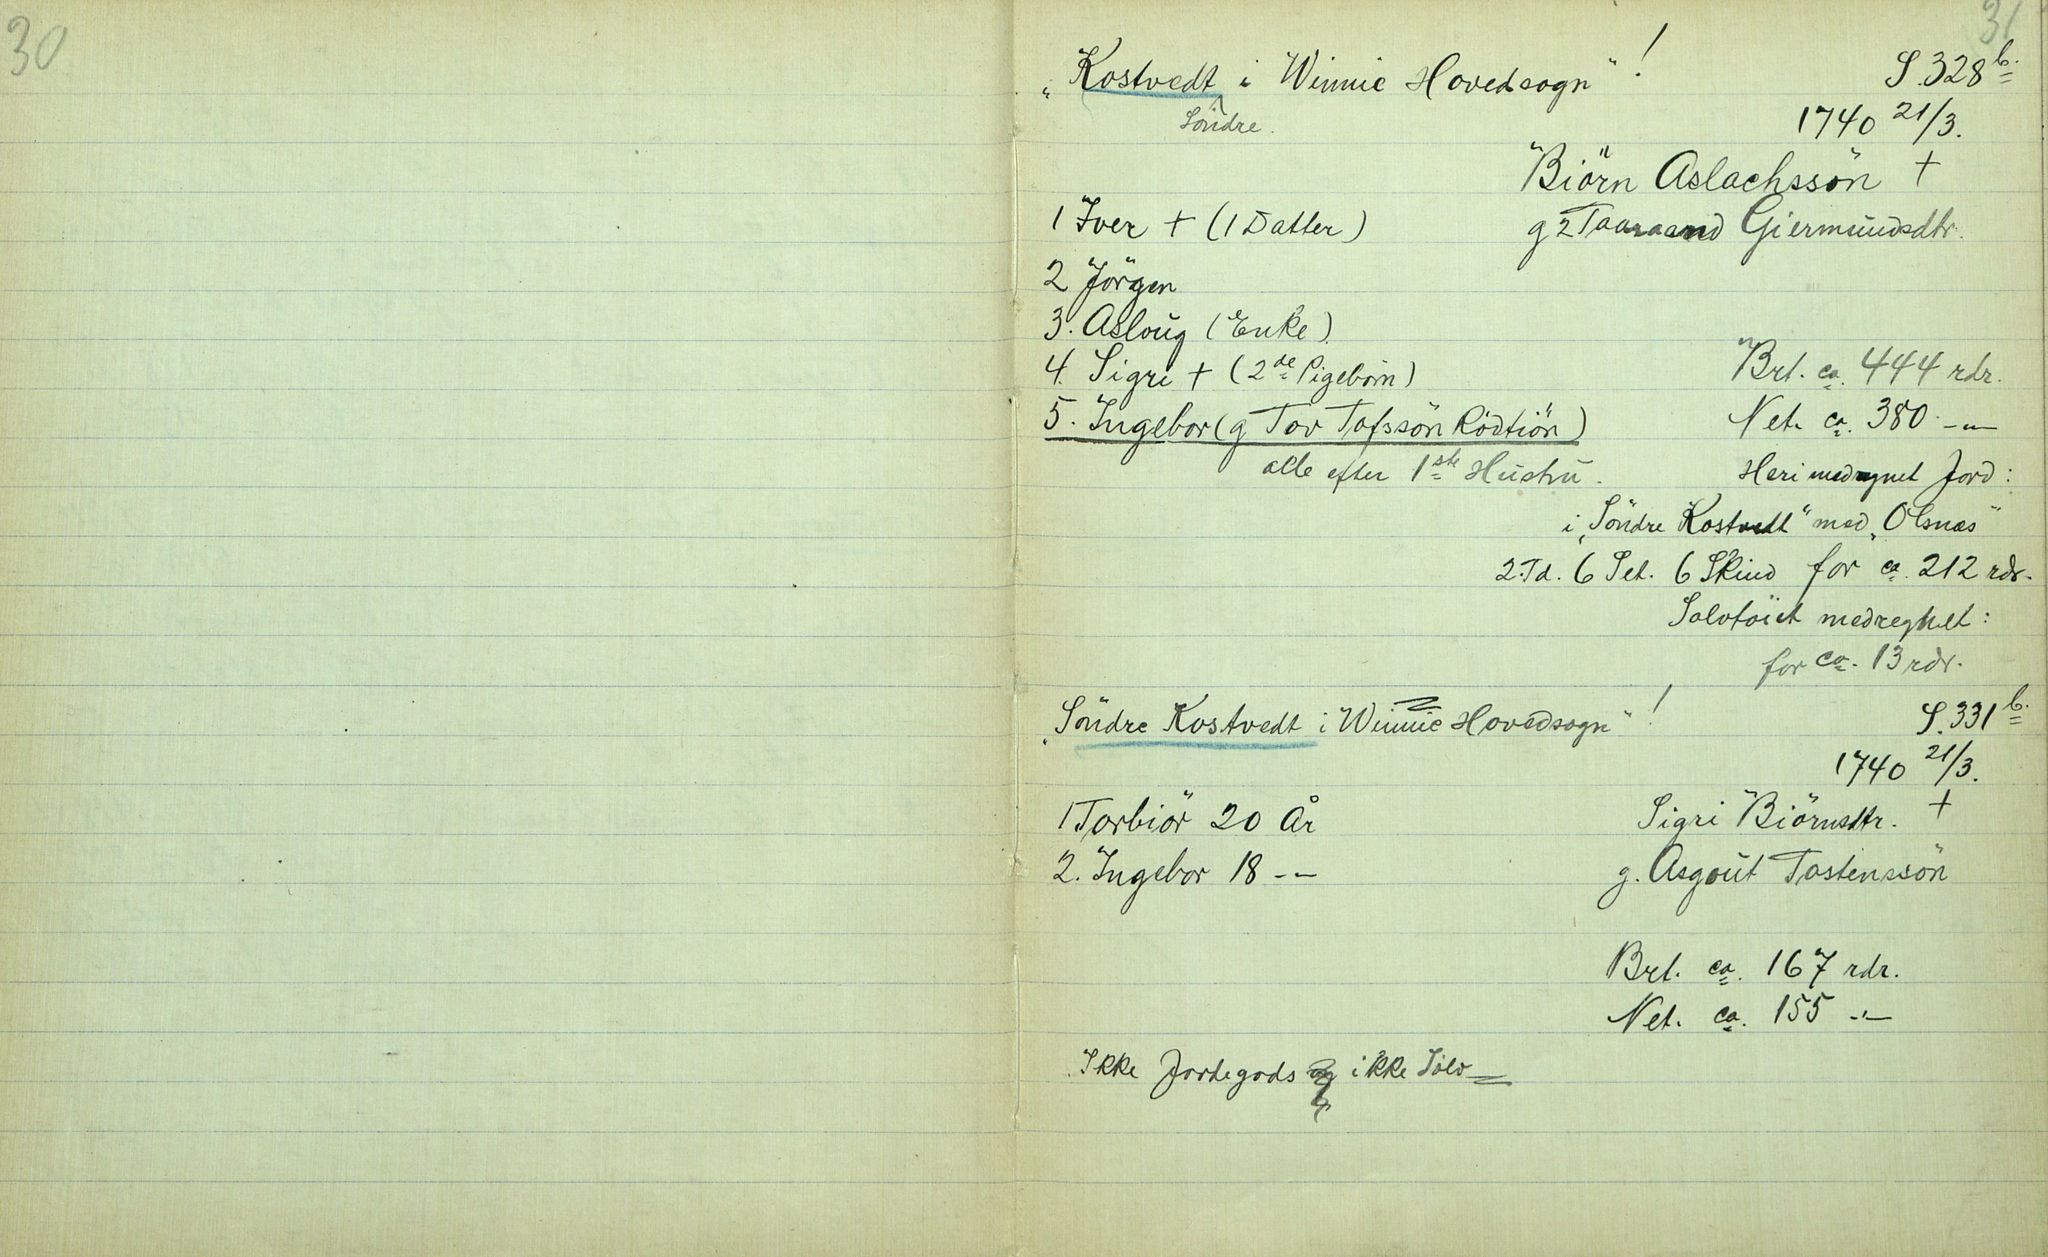 30
31
"Kostvedt i Winnie Hovedsogn" !
S. 328 b.
Söndre.
1740 21/3.
Biörn Aslachssön +
1 Iver + (1 Datter)
g 2 Taaraand Giermundsdtr.
2 Jörgen
3. Asloug (Enke)
4. Sigri + (2de Pigebörn)
Brt. ca. 444 rdr.
5. Ingebor (g Tov Tofssön Rödtiön)
Net. ca. 380 -"-
alle efter 1ste Hustru.
Heri medregnet Jord:
i "Söndre Kostvedt" med "Olsnæs"
2 Td. 6 Set. 6 Skind for ca. 212 rdr.
Sölvtöiet medregnet:
for ca. 13 rdr.
"Söndre Kostvedt i Winnie Hovedsogn" !
S. 331 b.
1740 21/3.
1 Torbiör 20 År
Sigri Biörnsdtr. +
2. Ingebor 18 -"-
g. Asgout Tostenssön
Brt. ca. 167 rdr.
Net. ca. 155 -"-
Ikke Jordegods og ikke Sölv